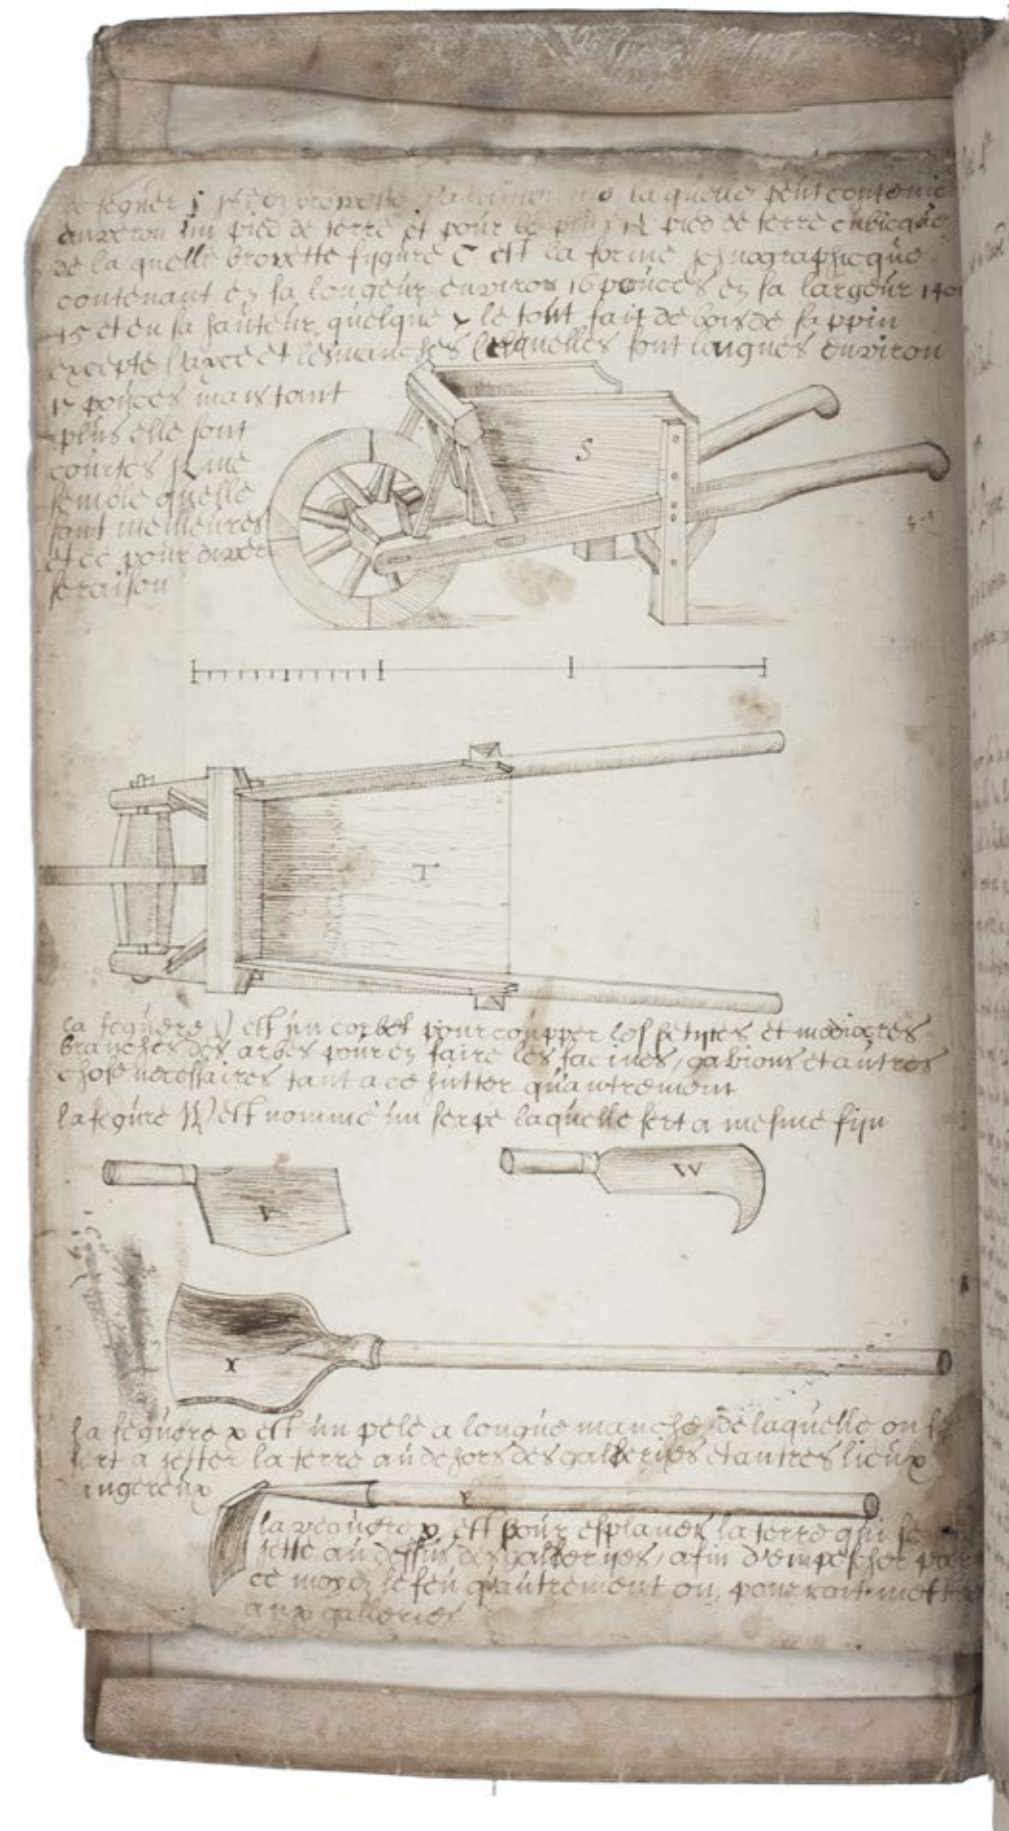 la quelle peut contenir
environ un pied de terre et pour le plus 1½ pied de terre cubicque
de la quelle brovette fygure T est la forme ichnographicque
contenant en sa longeur environ 16 pouces en sa largeur 14 o
15 et en sa hauteur quelque le tout fait de bois de sappin
excepte l'axce et les manches lesquelles sont longues environ
pouces mais tant
plus elle sont
courtes il me
semble quelle
sont meilleures
et ce pour diver
se raison
S
T
la feguere V est un corbet pour coupper les petites et mediocres
branches des arbes pour en faire les facines, gabions et autres
chose necessaires tant a ce hutter qu'autrement
la fegure W est nomme un serpe laquelle sert a mesme fijn
V
W
X
la feguere x est un pele a longue manche, de laquelle on se
sert a jetter la terre au dehors des galleryes et autres lieux
Y
la veguere y est pour esplaner la terre qui se
jette au dessus des galleryes, afin d'empescher par
ce moyen le feu qu'autrement on pouroit mettre
aux galleries